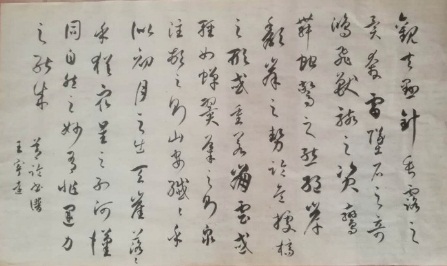 觀夫懸針垂露之
異奔雷墜石之奇
鴻飛獸駭之資鸞
舞蛇驚之態絕岸
頹峯之勢臨危據槁
之形或重若崩雲或
輕如蟬翼導之則泉
注頓之則山安纖纖乎
似初月之出天崖落落
乎猶眾星之列河漢
同自然之妙有非運力
之能成
書譜